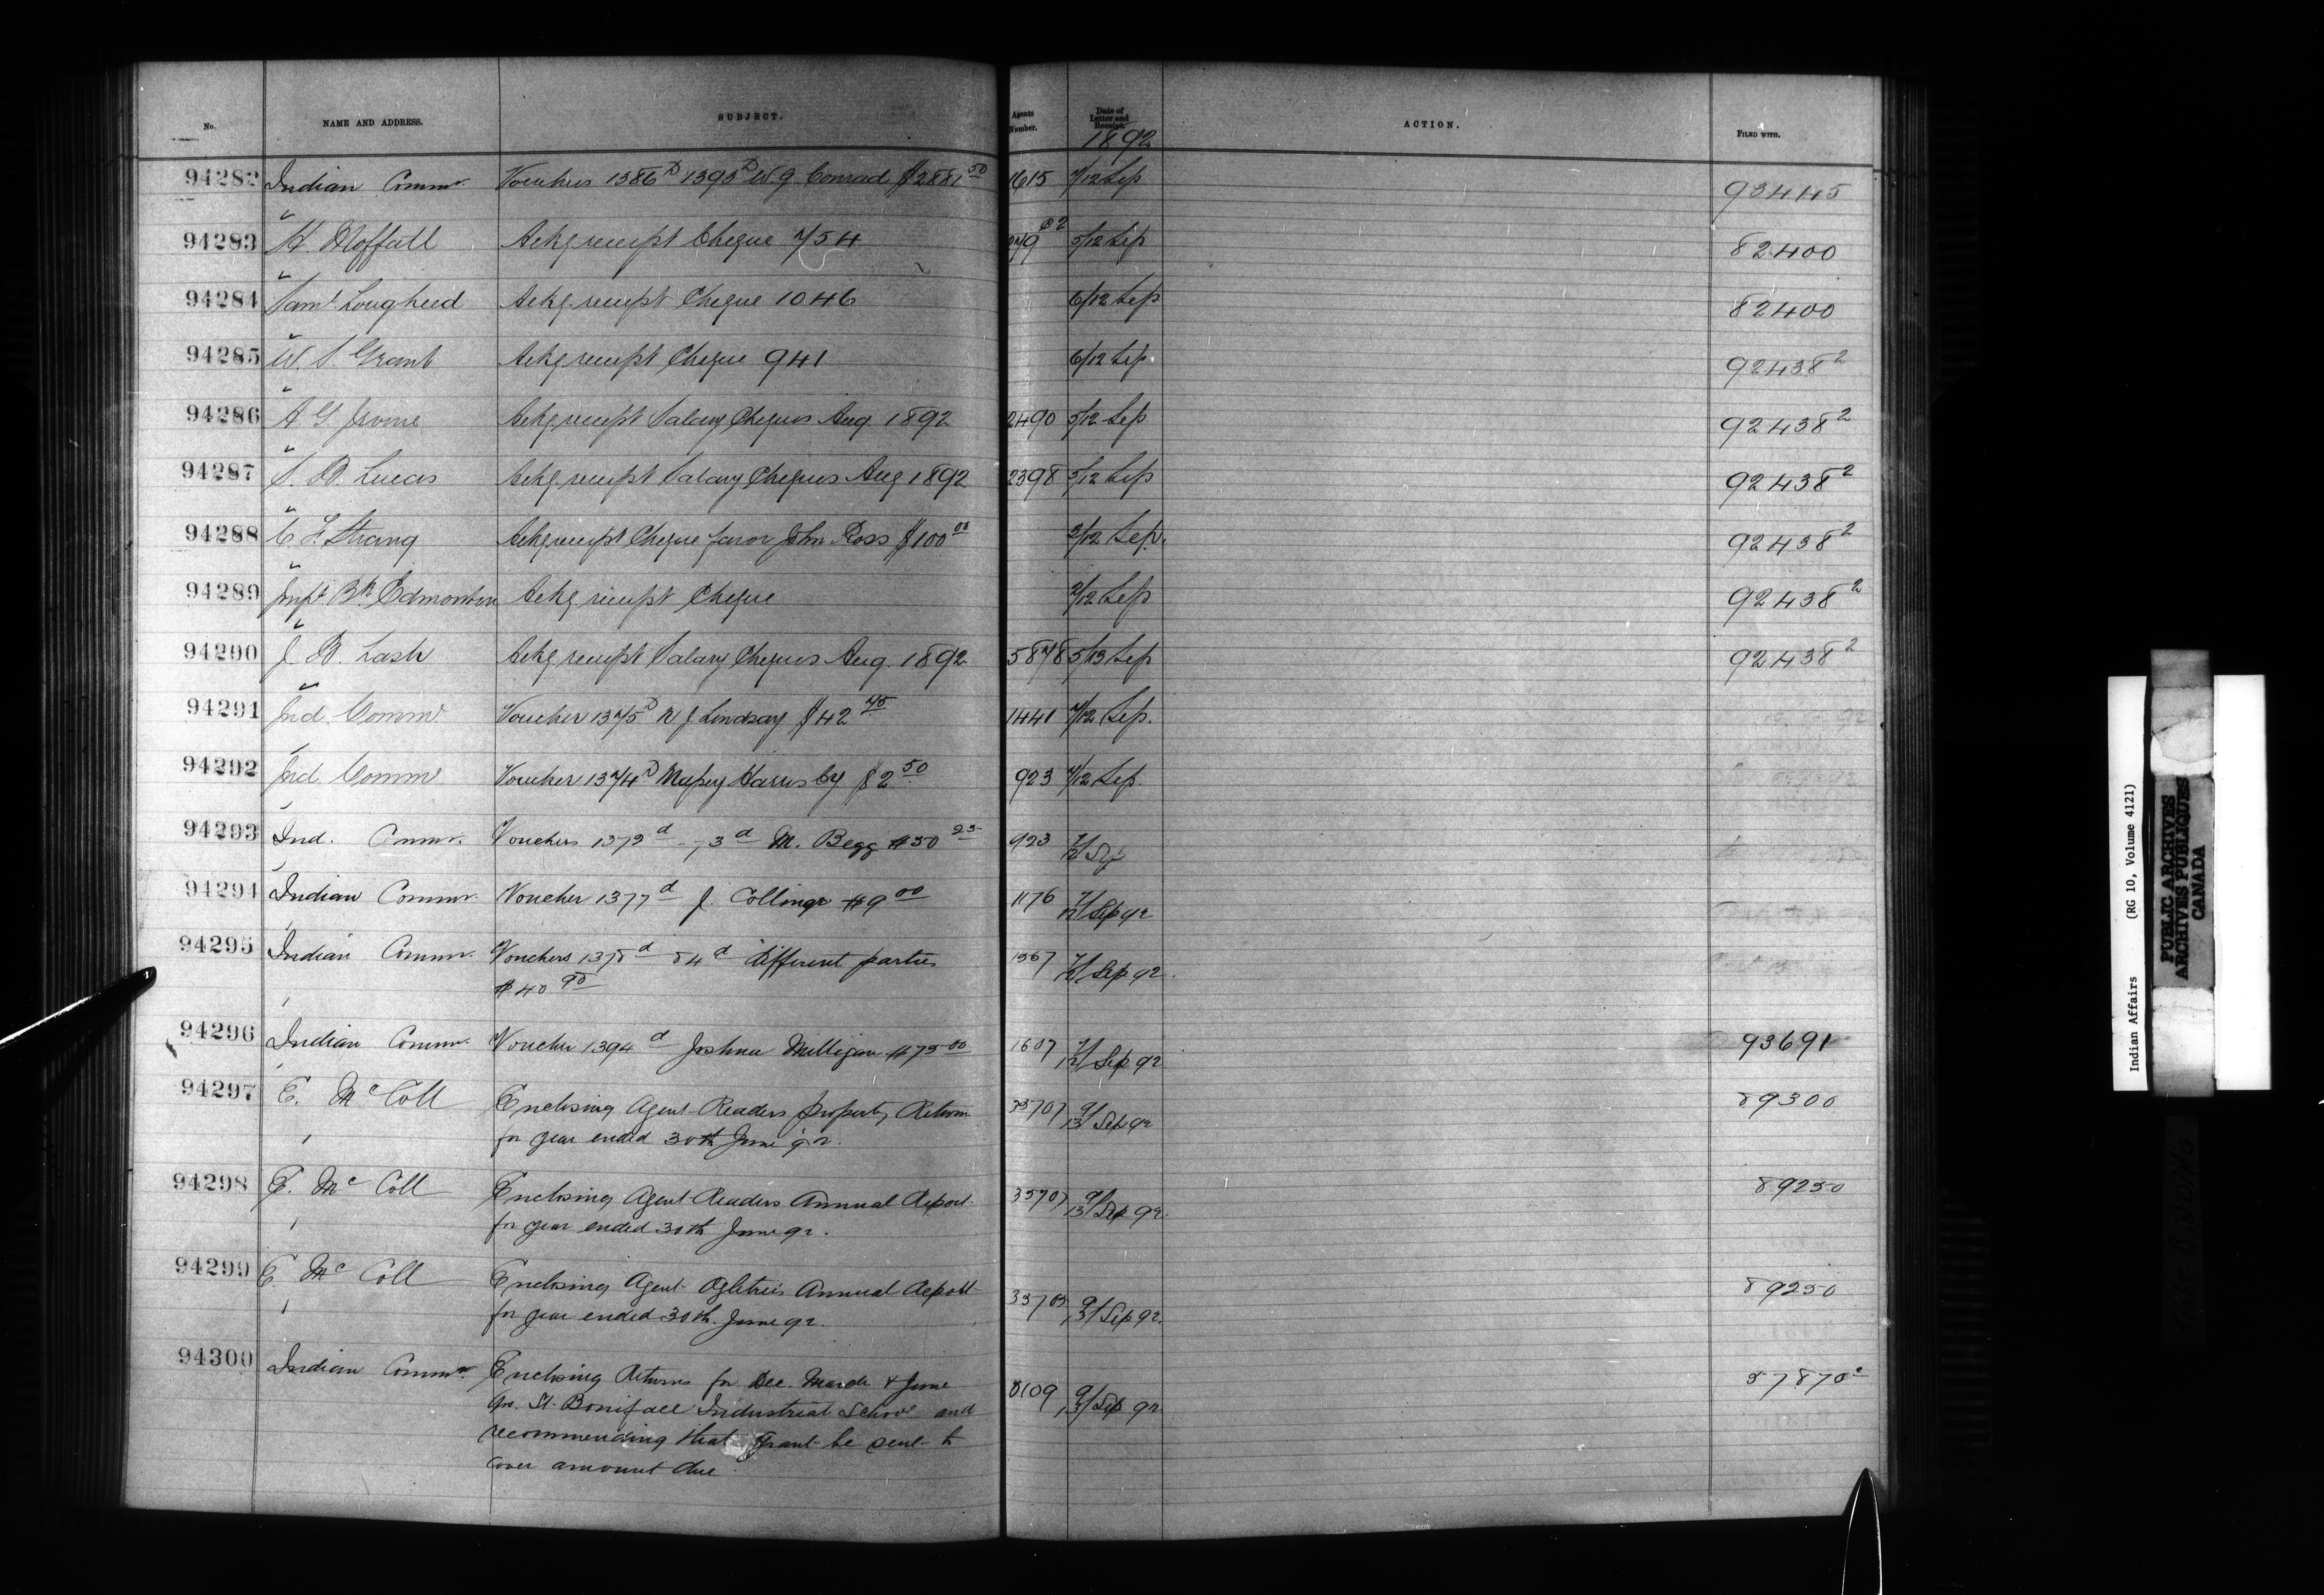 No. NAME AND ADDRESS. SUBJECT. Agents Number. Date of Letter and Receipt. ACTION. FILED WITH.
1892
94282 Indian Commr. Vouchers 1386D 1395D W. G. Conrad $2881 50 1615 7/12 Sep 93445
94283 H. Moffatt Ackg receipt Cheque 754 279 5/12 Sep 82400
94284 Saml. Lougheed Ackg receipt Cheque 1046 6/12 Sep 82400
94285 W. S. Grant Ackg receipt Cheque 941 6/12 Sep. 92438 2
94286 A G Irvine Ackg receipt Salary Cheques Aug 1892 2490 5/12 Sep 92438 2
94287 S. B. Lucas Ackg receipt Salary Cheques Aug 1892 2398 5/12 Sep 92438 2
94288 C F. Strang Ackg receipt Cheque favor John Ross $100 00 2/12 Sep. 92438 2
94289 Impl. Bk Edmonton Ackg receipt Cheque 2/12 Sep 92438 2
94290 J. B. Lash Ackg receipt Salary Cheques Aug. 1892 5878 5/13 Sep 92438 2
94291 Ind. Commr Voucher 1375D N J Lindsay $42 75 1441 7/12 Sep.
94292 Ind Commr Voucher 1374D Harris Cy. $2 50 923 7/12 Sep.
94293 Ind. Commr. Vouchers 1372d - 73d M. Begg $50 25 923 7/12 Sep
94294 Indian Commr. Voucher 1377d J. $9 00 1176 7/12 Sep 92
94295 Indian Commr. Vouchers 1378d 84d different parties 1567 7/12 Sep 92.
$40 90
94296 Indian Commr. Voucher 1394d Joshua Milligan $75 00 1607 7/12 Sep 92 93691
94297 E. McColl Enclosing Agent Readers property Return 35707 9/13 Sep 92 89300
for year ended 30th June 92.
94298 E. McColl Enclosing Agent Readers Annual Report 35707 9/13 Sep 92. 89250
for year ended 30th June 92.
94299 E. McColl Enclosing Agent Ogletree's Annual Report 35705 9/13 Sep 92. 89250
for year ended 30th. June 92.
94300 Indian Commr. Enclosing Returns for Dec. March & June 8109 9/13 Sep 92 57870 2
qrs. St. Boniface Industrial School and
recommending that grant be sent to
cover amount due
Indian Affairs (RG 10, Volume 4121)
PUBLIC ARCHIVES
ARCHIVES PUBLIQUES
CANADA